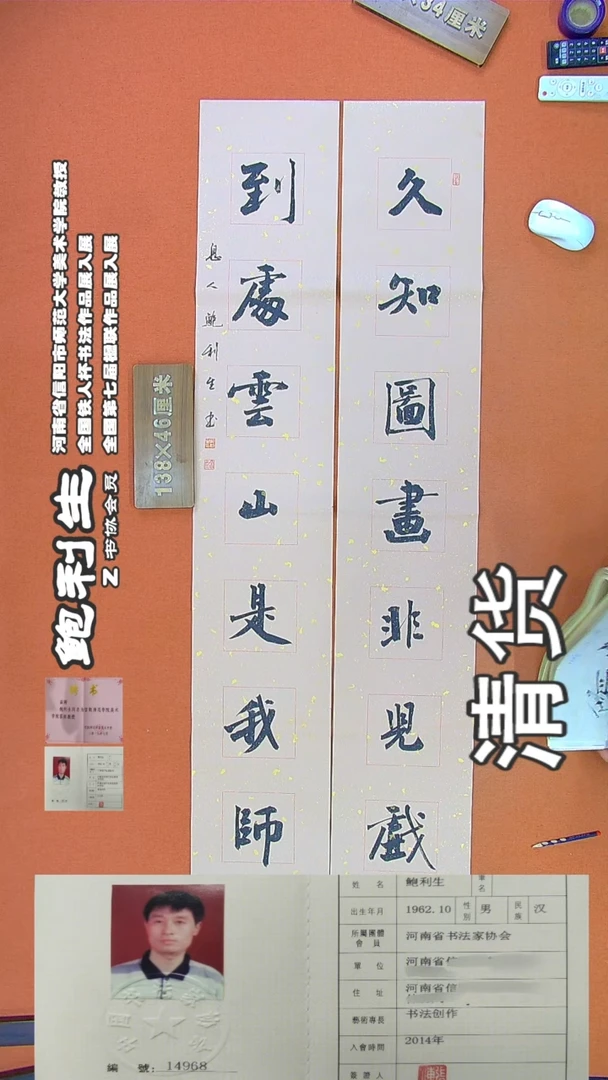 ×34厘米
久知圖畫非兒戲
到處雲山是我師
息人鮑利生書
138×46厘米
河南省信阳市师范大学美术学院教授
全国铁人杯书法作品展入展
全国第七届楹联作品展入展
鲍利生
Z 书协会员
清货
姓名 鲍利生 筆名
出生年月 1962.10 性别 男 民族 汉
所屬團體 河南省书法家协会
會員
單位 河南省信
住址 河南省信
藝術專長 书法创作
入會時間 2014年
簽證人
編號: 14968